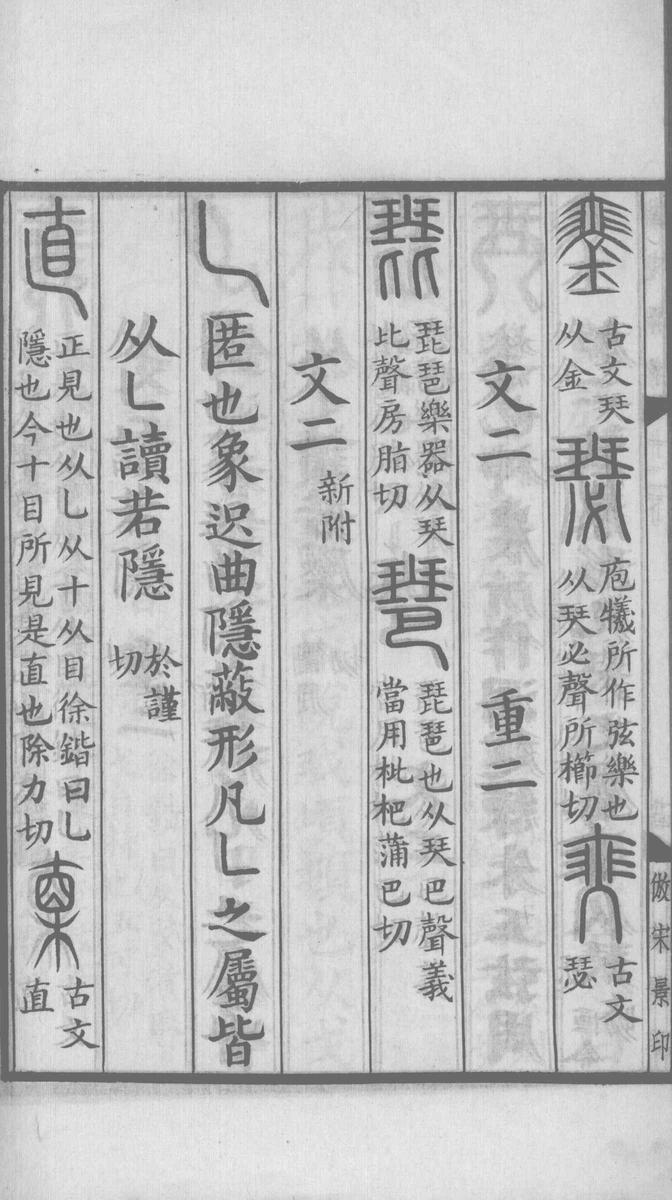 古文珡
从金
瑟
庖犧所作弦樂也
从珡必聲所櫛切
古文
瑟
文二　重二
琵
琵琶樂器从珡
比聲房脂切
琶
琵琶也从珡巴聲義
當用枇杷蒲巴切
文二
新附
乚
匿也象迟曲隱蔽形凡乚之屬皆
从乚讀若隱
於謹
切
直
正見也从乚从十从目徐鍇曰乚
隱也今十目所見是直也除力切
古文
直
倣宋景印